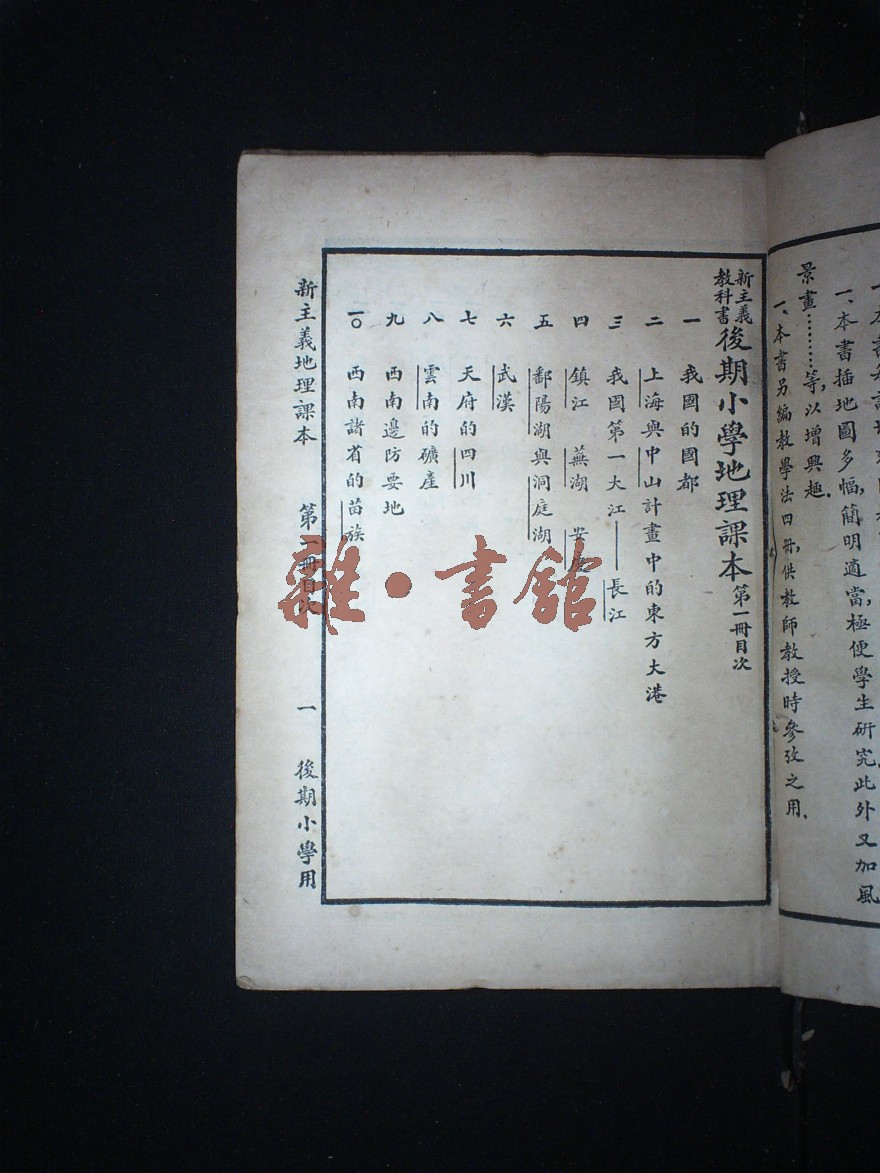 一、本書插地圖多幅,簡明適當,極便學生研究,此外又加風
景畫…………等,以增興趣.
一、本書另編教學法四冊,供教師教授時參攷之用.
新主義
教科書 後期小學地理課本 第一冊目次
一 我國的國都
二 上海與中山計畫中的東方大港
三 我國第一大江——長江
四 鎮江 蕪湖 安慶
五 鄱陽湖與洞庭湖
六 武漢
七 天府的四川
八 雲南的礦產
九 西南邊防要地
一〇 西南諸省的苗族
新主義地理課本 第一冊目次 一 後期小學用
雜·書館